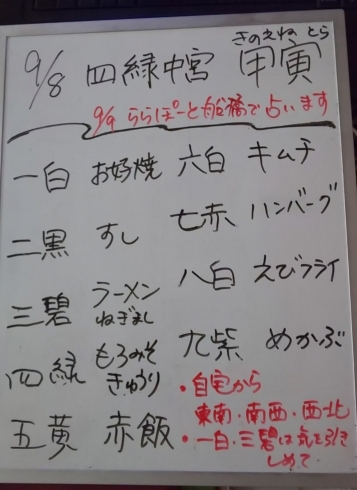 きのえね とら
9/8 四緑中宮 甲寅
9/9 ららぽーと船橋で占います
一白 お好焼
二黒 すし
三碧 ラーメン
ねぎまし
四緑 もろみそ
きゅうり
五黄 赤飯
六白 キムチ
七赤 ハンバーグ
八白 えびフライ
九紫 めかぶ
・自宅から
東南・南西・西北
・一白・三碧は気を引き
しめて